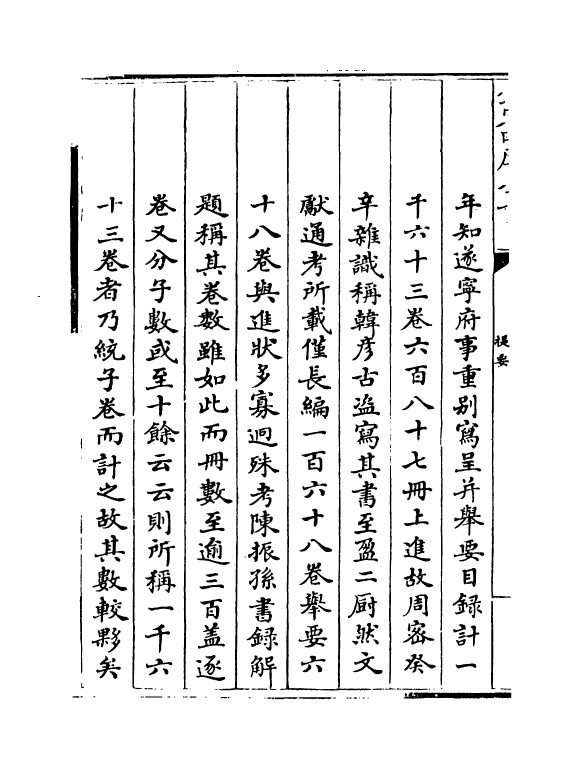 提要
年知遂寧府事重別寫呈并舉要目録計一
千六十三卷六百八十七冊上進故周密癸
辛雜識稱韓彦古盗寫其書至盈二厨然文
獻通考所載僅長編一百六十八卷舉要六
十八卷與進狀多寡迥殊考陳振孫書録解
題稱其卷數雖如此而冊數至逾三百盖逐
卷又分子數或至十餘云云則所稱一千六
十三卷者乃統子卷而計之故其數較夥矣